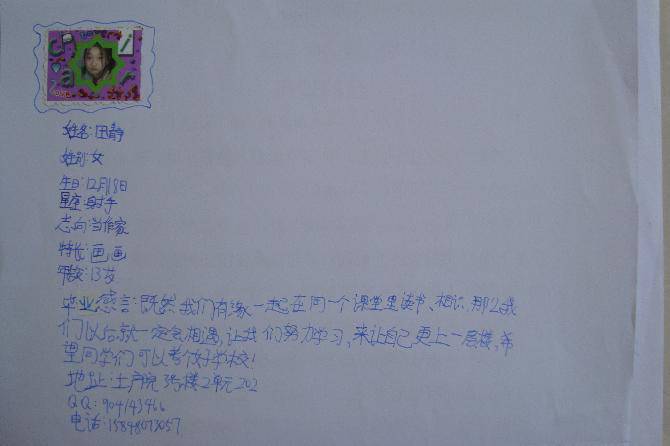 姓名:田静
姓别:女
生日:12月18日
星座:射手
志向:当作家
特长:画画
年龄:13岁
毕业感言:既然我们有缘一起在同一个课堂里读书、相识,那么我
们以后就一定会相遇,让我们努力学习,来让自己更上一层楼,希
望同学们可以考个好学校!
地址:土产院3号楼2单元202
QQ:904143466
电话:15848073057